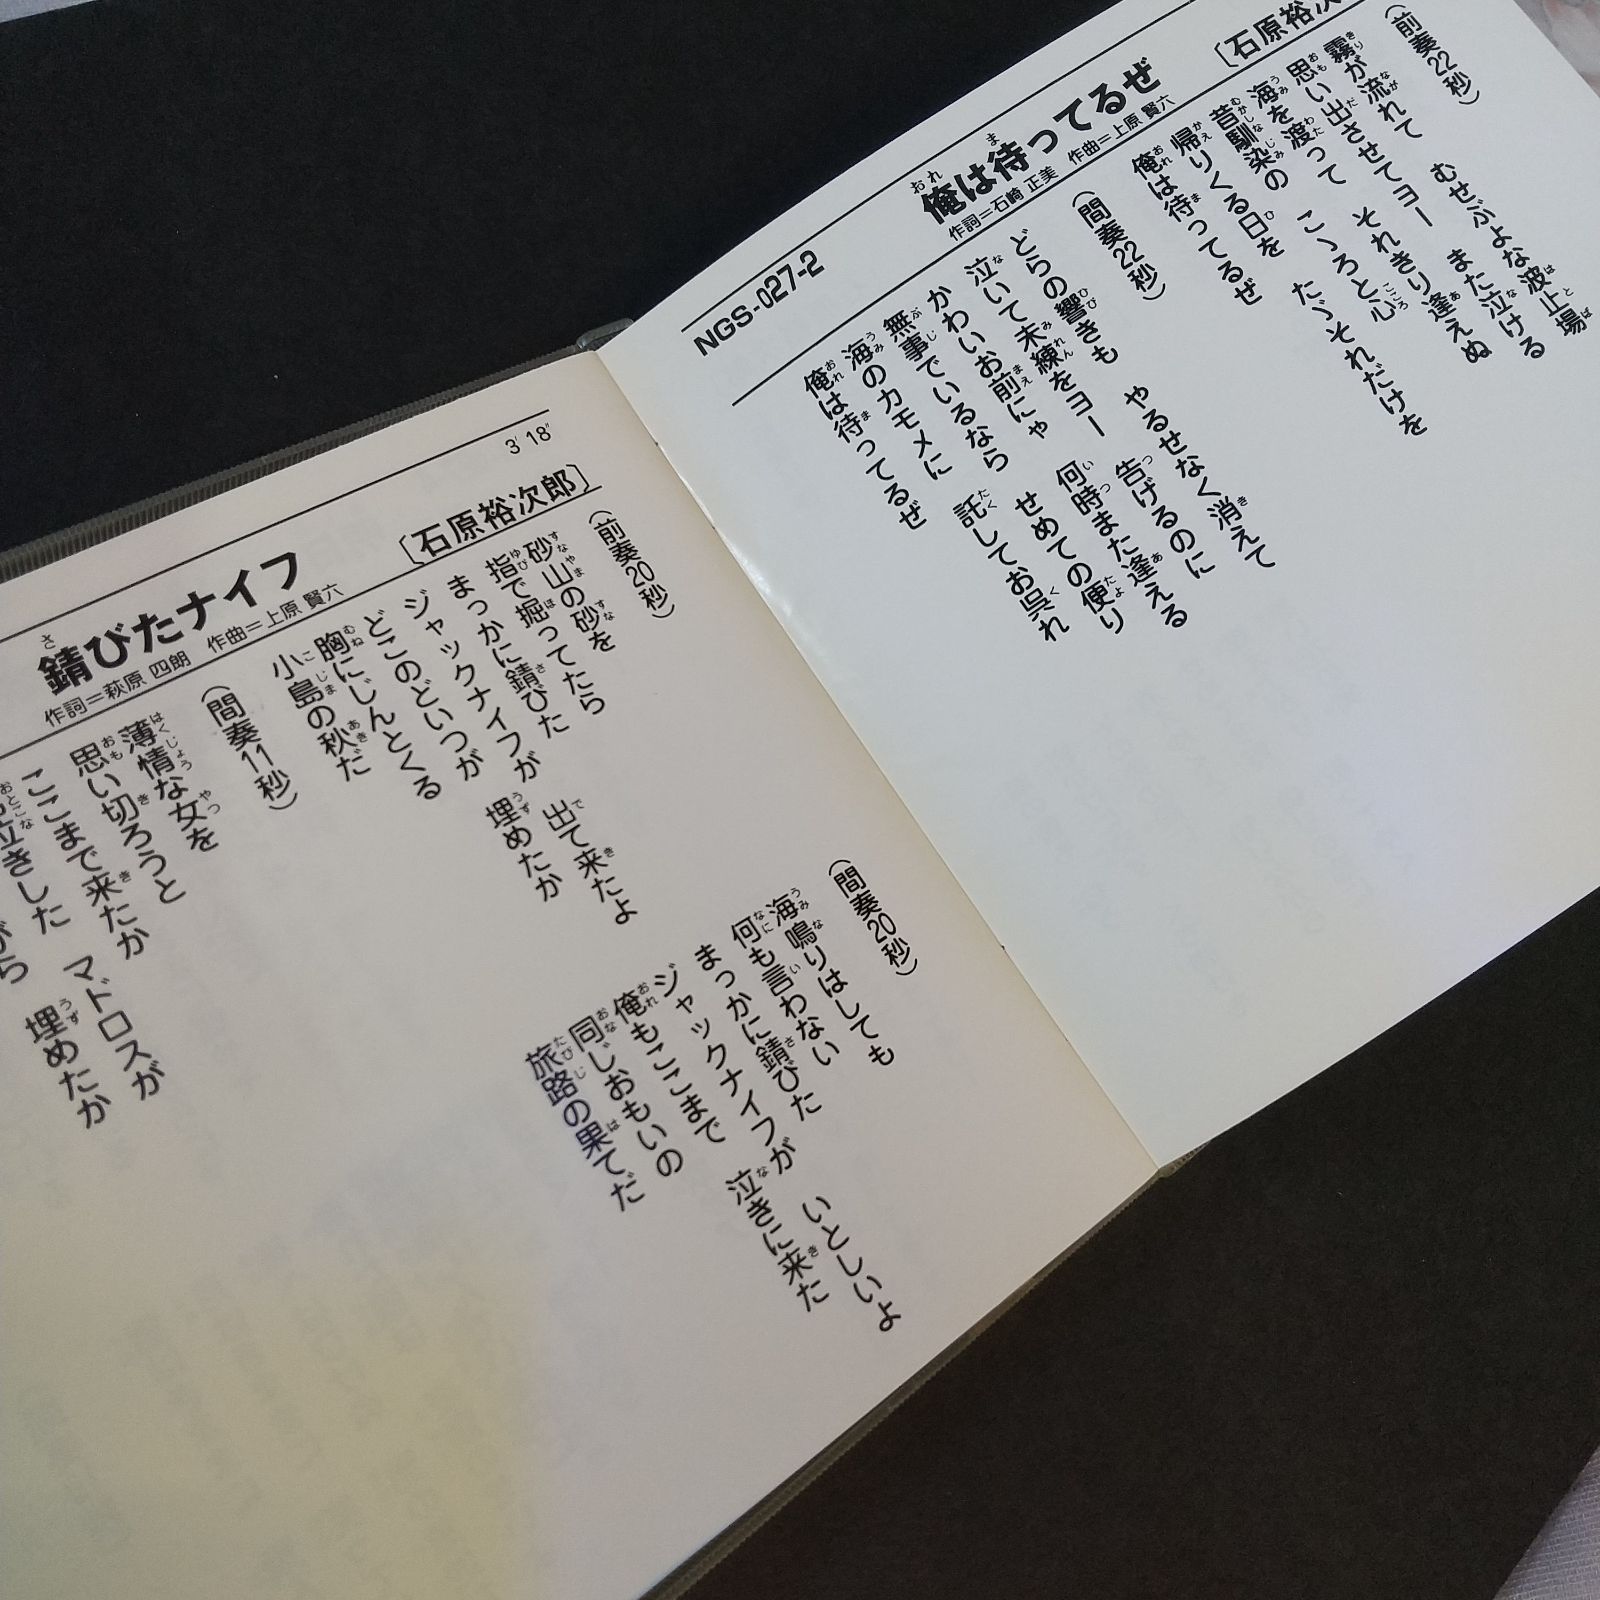 〔石原裕次
俺は待ってるぜ
作詞＝石崎 正美　作曲＝上原 賢六
NGS-027-2
（前奏22秒）
霧が流れて　むせぶよな波止場
思い出させてヨー　また泣ける
海を渡って　それきり逢えぬ
昔馴染の　こゝろと心
帰りくる日を　たゞそれだけを
俺は待ってるぜ
（間奏22秒）
どらの響きも　やるせなく消えて
泣いて未練をヨー　告げるのに
かわいお前にゃ　何時また逢える
無事でいるなら　せめての便り
海のカモメに　託してお呉れ
俺は待ってるぜ
3′18″
〔石原裕次郎〕
錆びたナイフ
作詞＝萩原 四朗　作曲＝上原 賢六
（前奏20秒）
砂山の砂を
指で掘ってたら
まっかに錆びた
ジャックナイフが　出て来たよ
どこのどいつが　埋めたか
胸にじんとくる
小島の秋だ
（間奏11秒）
薄情な女を
思い切ろうと
ここまで来たか
泣きした　マドロスが
がら　埋めたか
（間奏20秒）
海鳴りはしても
何も言わない
まっかに錆びた
ジャックナイフが　いとしいよ
俺もここまで　泣きに来た
同じおもいの
旅路の果てだ